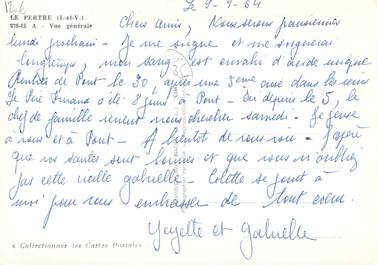 LE PERTRE (I.-et-V.)
278-15 A - Vue générale
Le 9-9-64
Chers amis, Nous serons parisiennes
lundi prochain - Je me soigne et me soignerai
longtemps, mon sang est envahi d'acide urique
Rentrées de Pont le 30, après une 3ème dans le
Le Père Fernand a été 8 jours à Pont - Ici depuis le 5, le
chef de famille venant nous chercher samedi - Je pense
à vous et à Pont - A bientôt de vous voir - J'espère
que vos santés sont bonnes et que vous n'oubliez
pas cette vieille gabrielle. Colette se joint à
moi pour vous embrasser de tout coeur.
Yeyette et Gabrielle
« Collectionnez les Cartes Postales